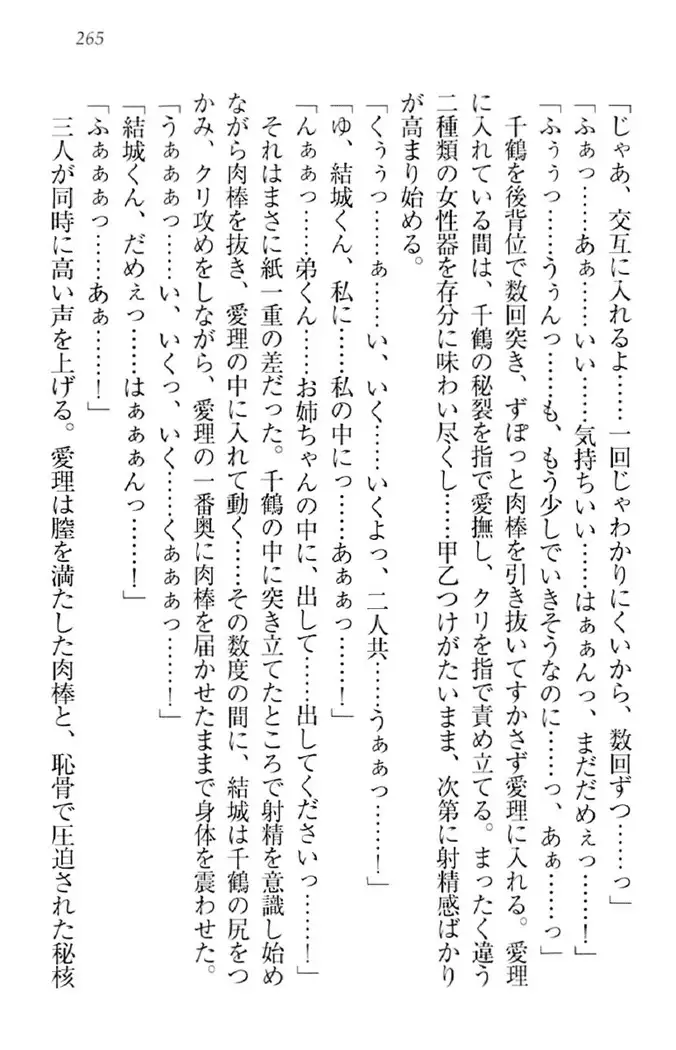 265
「じゃあ、交互に入れるよ……一回じゃわかりにくいから、数回ずつ……っ」
「ふぁっ……あぁ……いい……気持ちいい……はぁぁんっ、まだだめぇっ……！
「ふぅぅっ……うぅんっ……も、もう少しでいきそうなのに……っ、あぁ……っ」
千鶴を後背位で数回突き、ずぽっと肉棒を引き抜いてすかさず愛理に入れる。愛理
に入れている間は、千鶴の秘裂を指で愛撫し、クリを指で責め立てる。まったく違う
二種類の女性器を存分に味わい尽くし……甲乙つけがたいまま、次第に射精感ばかり
が高まり始める。
「くぅぅっ……ぁ……い、いく……いくよっ、二人共……うぁぁっ……！」
「ゆ、結城くん、私に……私の中にっ……あぁぁっ……！」
「んぁぁっ……弟くん……お姉ちゃんの中に、出して……出してくださいっ……！」
それはまさに紙一重の差だった。千鶴の中に突き立てたところで射精を意識し始め
ながら肉棒を抜き、愛理の中に入れて動く……その数度の間に、結城は千鶴の尻をつ
かみ、クリ攻めをしながら、愛理の一番奥に肉棒を届かせたままで身体を震わせた。
「うぁぁぁっ……い、いくっ、いく……くぁぁぁっ……！」
「結城くん、だめぇっ……はぁぁぁんっ……！」
「ふぁぁぁっ……あぁ……！」
三人が同時に高い声を上げる。愛理は膣を満たした肉棒と、恥骨で圧迫された秘核